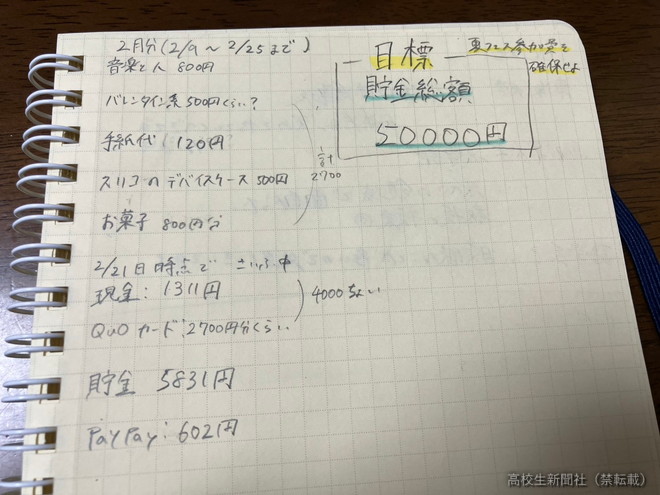 2月分(2/9～2/25まで)
音楽と人 800円
バレンタイン系 500円くらい?
手紙代 120円
スリコのデバイスケース 500円
お菓子 800円分
計
2700
目標
貯金総額
50000円
夏フェス参加費を
確保せよ
2/21日時点で さいふ中
現金: 1311円
QUOカード: 2700円分くらい
4000ちょい
貯金 5831円
PayPay: 602円
高校生新聞社（禁転載）